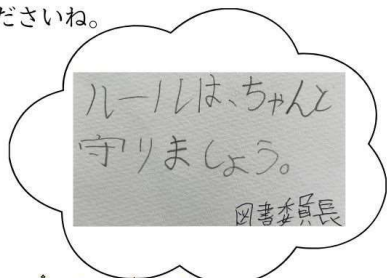 ださいね。
ルールは、ちゃんと
守りましょう。
図書委員長